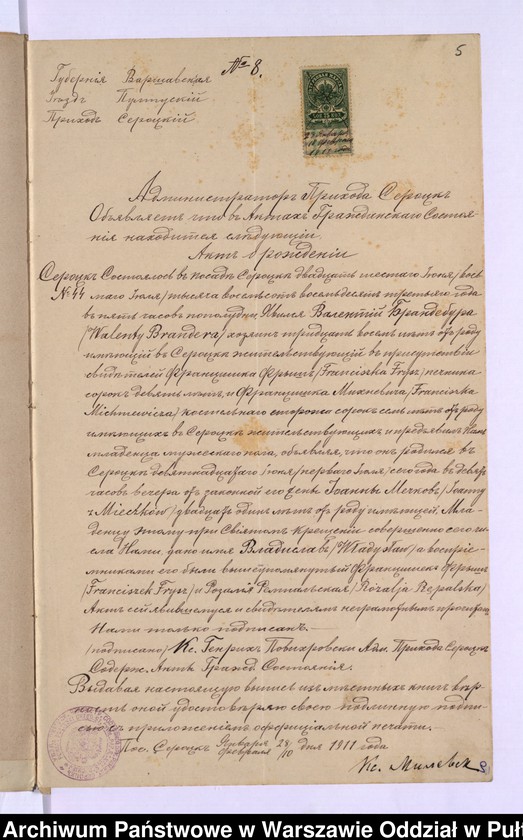 5
№ 8.
Губернія Варшавская
Уѣздъ Пултускій
Приходъ Сероцкій
Администраторъ Прихода Сероцкъ
Объявляетъ что въ Актахъ Гражданскаго Состоя-
нія находится слѣдующій
Актъ о рожденіи
Сероцкъ Состоялось въ посадѣ Сероцкъ двадцать шестаго Іюня /вось
№ 44 маго Іюля/ тысяча восемьсотъ восемьдесятъ третьяго года
въ пять часовъ пополудни. Явился Валентій Брандебура
/Walenty Brandera/ тридцати восьми лѣтъ отъ роду
имѣющій въ Сероцкѣ жительствующій въ присутствіи
свидѣтелей Францишка Фрышъ /Franciszka Frysz/ печника
сорокъ девять лѣтъ, и Францишка Михневича /Franciszka
Michniewicza/ костельнаго сторожа сорокъ семь лѣтъ отъ роду
имѣющихъ въ Сероцкѣ жительствующихъ и предъявилъ Намъ
младенца мужескаго пола, объявляя, что онъ родился въ
Сероцкѣ девятнадцатаго Іюня /перваго Іюля/ сего года въ десять
часовъ вечера отъ законной его жены Іоанны Мечковъ /Joanny
z Mieczków/ двадцать одинъ лѣтъ отъ роду имѣющей. Мла-
денцу этому при Святомъ Крещеніи совершенномъ сего чи-
сла Нами, дано имя Владиславъ /Władysław/ а воспріе-
мниками его были вышеупомянутый Францишекъ Фрышъ
/Franciszek Frysz/ и Розалія Репульская /Rozalja Repulska/
Актъ сей явившемуся и свидѣтелямъ неграмотнымъ прочитанъ
Нами только подписанъ.—
/подписано/ Кс. Генрихъ Повихровски Адм. Прихода Сероцкъ
Содерж. Акты Гражд. Состоянія.
Выдавая настоящую выпись изъ мѣстныхъ книгъ вѣр-
ность оной удостовѣряю своею подлинною подпи-
сью съ приложеніемъ офиціальной печати.—
Пос. Сероцкъ Января/Февраля 28/10 дня 1911 года
Кс. Милевск
Archiwum Państwowe w Warszawie Oddział w Puł